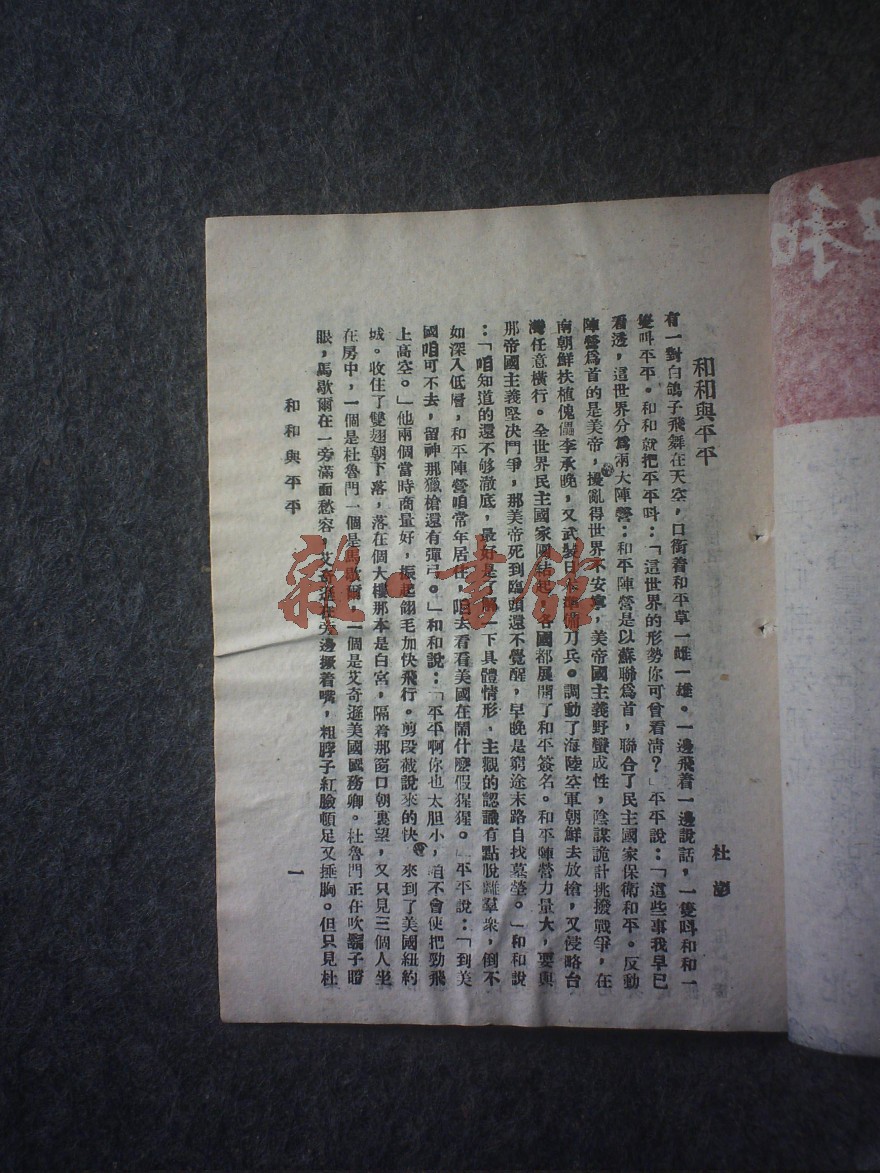 和和與平平
杜澎
有一對白鴿子飛舞在天空，口銜着和平草一雌一雄。一邊飛着一邊說話，一隻呌和和一
隻呌平平。和和就把平平呌：「這世界的形勢你可曾看淸？」平平說：「這些事我早已
看透，這世界分爲兩大陣營：和平陣營是以蘇聯爲首，聯合了民主國家保衛和平。反動
陣營爲首的是美帝，擾亂得世界不安寧，美帝國主義野蠻成性，陰謀詭計挑撥戰爭，在
南朝鮮扶植傀儡李承晚，又武裝日本準備刀兵。調動了海陸空軍朝鮮去放槍，又侵略台
灣任意橫行。全世界民主國家團結起，各國都展開了和平簽名。和平陣營力量大，要與
那帝國主義堅决鬥爭，那美帝死到臨頭還不覺醒，早晚是窮途末路自找墓塋。」和和說
：「咱知道的還不够澈底，最好是了解一下具體情形，主觀的認識有點脫離羣衆，倒不
如深入低層，和平陣營咱常年居住，咱去看看美國在鬧什麽假猩猩。」平平說：「到美
國咱可不去，留神那獵槍還有彈弓。」和和說：「平平啊你也太胆小，咱不會使把勁飛
上高空。」他兩個當時商量好，振起翎毛加快飛行。剪段截說來的快，來到了美國紐約
城。收住了雙翅朝下落，落在個大樓那本是白宮，隔着那窗口朝裏望，又只見三個人坐
在房中，一個是杜魯門一個是馬歇爾，一個是艾奇遜美國國務卿。杜魯門正在吹鬍子瞪
眼，馬歇爾在一旁滿面愁容，艾奇遜在旁邊撅着嘴，粗脖子紅臉頓足又捶胸。但只見杜
和和與平平
一
雜·書館
和